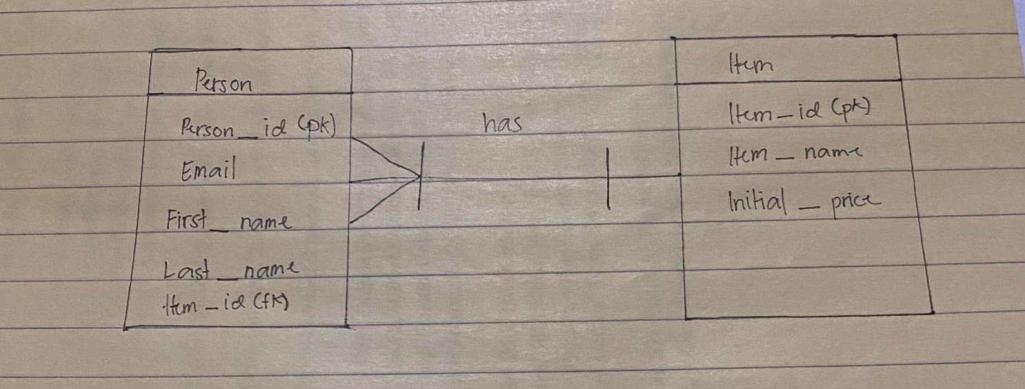 Person
Person_id (pk)
Email
First_name
Last_name
Item_id (fk)
has
Item
Item_id (pk)
Item_name
Initial_price